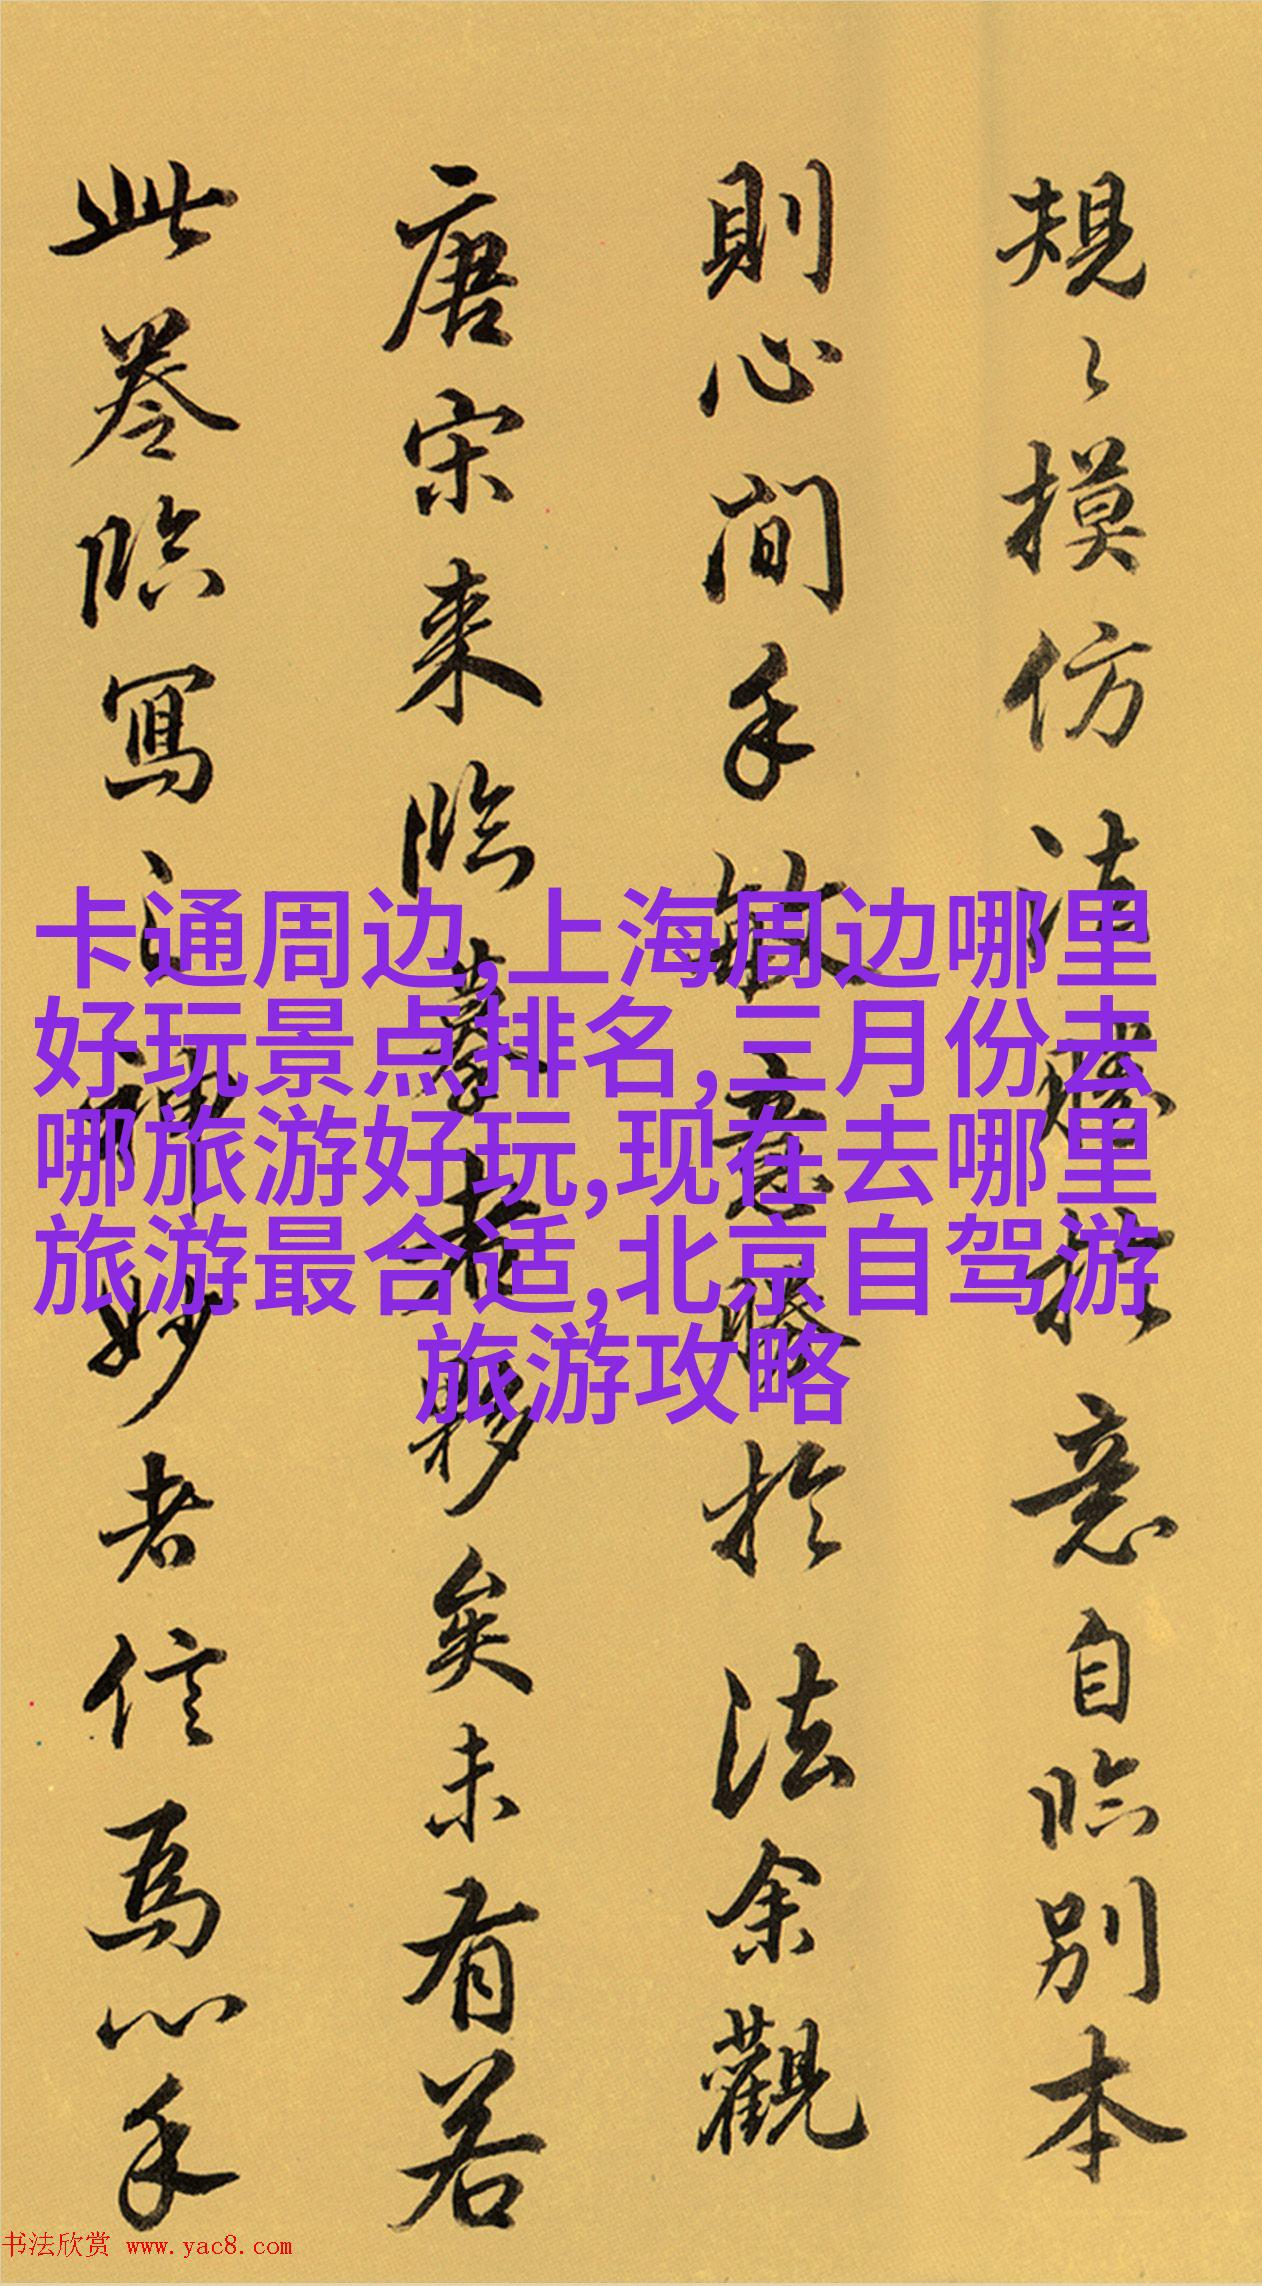 規〻摸仿法勝於意自臨別本
則心閒手敏意勝於法余觀
唐宋来臨摹者夥矣未有若
此卷臨寫之神妙者信焉心手
卡通周边,上海周边哪里
好玩景点排名,三月份去
哪旅游好玩,现在去哪里
旅游最合适,北京自驾游
旅游攻略
书法欣赏 www.yac8.com